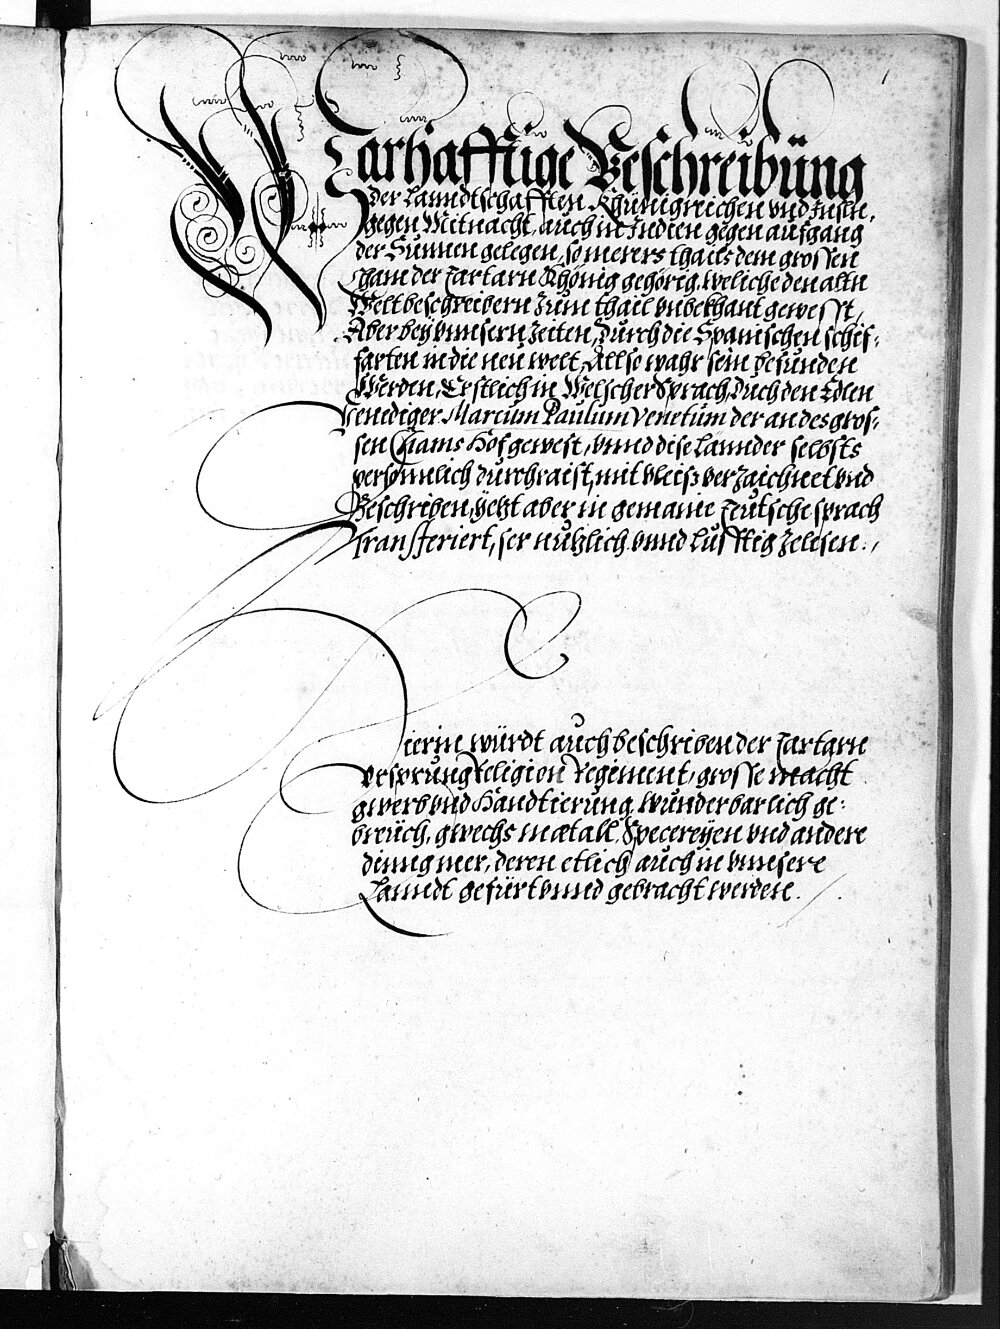 Warhafftige Beschreibüng
der Lanndtschafften, Khünigreichen vnd Jnsln,
gegen Mitnacht, auch in Jndien gegen aufgang
der Sunnen gelegen, so merers thails dem grossen
Cham der Tartarn Khönig gehörig, weliche den altn
Weltbeschreibern zum thail vnbekhant gewesst,
Aber bey vnnsern zeiten, Durch die Spanischen schif-
farten in die neu welt, Allso wahr sein befunden
Werden, Erstlich in Welscher Sprach, Durch den Edlen
Venediger Marcum Paulum Venetum der an des gros-
sen Chams Hof gewest, vnnd dise Lannder selbsts
persönnlich durchraist, mit vleiß verzaichnet vnd
Beschriben, yetzt aber in gemaine Teutsche sprach
Transferiert, ser nutzlich vnnd lusstig zelesen.
Hierin würdt auch beschriben der Tartarn
vrsprung Religion Regement, grosse macht
gwerb vnd Handtierung, wunderbarlich ge-
breüch, gwechs mætall, Specereÿen vnd andere
dinng mer, deren etlich auch in vnnsere
Lanndt gefürt vnnd gebracht werden.